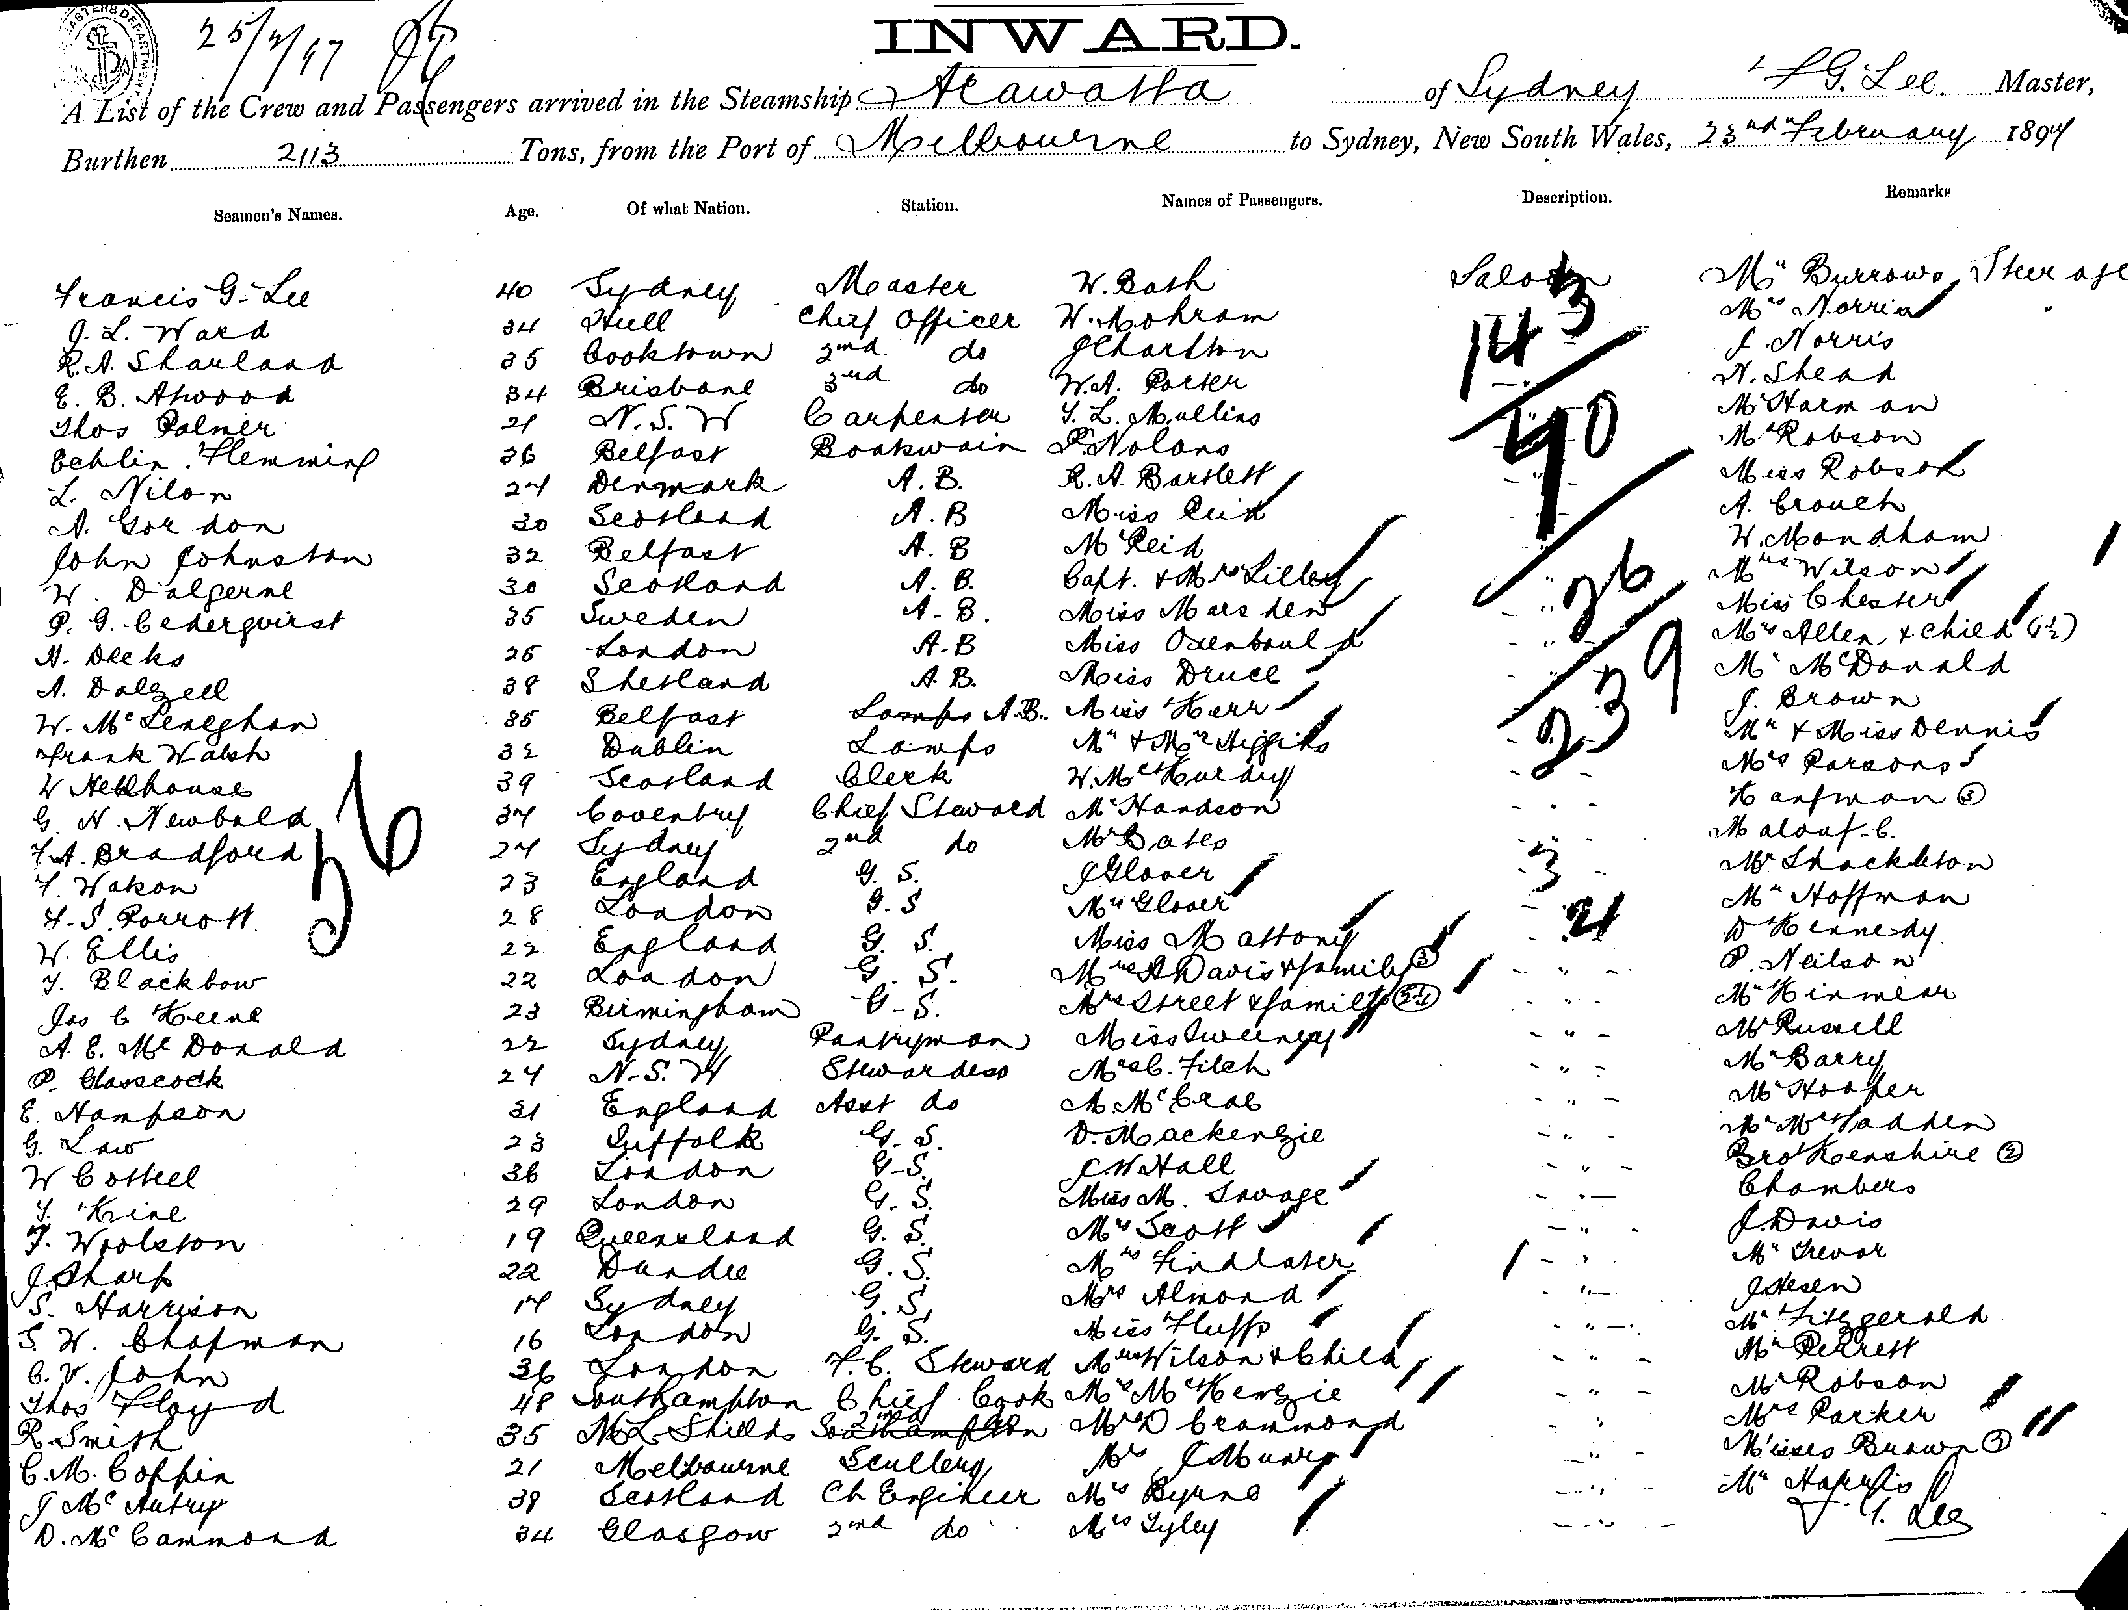 25/2/97
INWARD.
A List of the Crew and Passengers arrived in the Steamship Arawatta of Sydney F G. Lee. Master,
Burthen 2113 Tons, from the Port of Melbourne to Sydney, New South Wales, 23rd February 1897
Seamen's Names. Age. Of what Nation. Station. Names of Passengers. Description. Remarks
Francis G. Lee 40 Sydney Master W. Bath Saloon Mr Burrows Steerage
J. L. Ward 34 Hull Chief Officer W. Mohram Mrs Norris
R. A. Sharland 35 Cooktown 2nd do J Charlton J. Norris
E. B. Atwood 34 Brisbane 3rd do W. A. Porter N. Shead
Thos Palmer 21 N. S. W Carpenter T. L. Mullins Mr Harman
Echlin Flemming 36 Belfast Boatswain P. Nolans Mr Robson
L. Nilon 27 Denmark A. B. R. A. Bartlett Miss Robson
A. Gordon 30 Scotland A. B Miss Reid A. Crouch
John Johnston 32 Belfast A. B Mr Reid W. Mondham
W. Dalgerne 30 Scotland A. B. Capt. & Mrs Lilley Mrs Wilson
P. G. Cederquirst 35 Sweden A. B. Miss Marsden Miss Chester
H. Deeks 25 London A. B Miss Oxenbould Mrs Allen & Child (1½)
A. Dalzell 38 Shetland A. B. Miss Druce Mr McDonald
W. McLeneghan 35 Belfast Lamps A.B. Miss Kerr J. Brown
Frank Walsh 32 Dublin Lamps Mr & Mrs Higgins Mr & Miss Dennis
W Hellhouse 39 Scotland Clerk W. McHurdy Mrs Parsons
G. H. Newbald 37 Coventry Chief Steward Mr Handson Kaufman (3)
F. A. Bradford 27 Sydney 2nd do Mr Bates Malouf. C.
F. Watson 23 England G. S. J Glover Mr Shackleton
F. S. Porrott 28 London G. S Mrs Glover Mr Hoffman
W. Ellis 22 England G. S. Miss Mattony D Kennedy
T. Blackbow 22 London G. S. Mrs A Davis & family (3) P. Neilson
Jas C Keene 23 Birmingham G. S. Mrs Street & family (3½) Mr Kinmear
A. E. McDonald 22 Sydney Pantryman Miss Sweeney Mr Russell
P. Glasscock 24 N. S. W Stewardess Mrs C. Fitch Mr Barry
E. Hampson 31 England Asst do A McCrae Mr Hooper
G. Law 23 Suffolk G. S. D. Mackenzie Mr McFadden
W Cottrel 36 London G. S. J W Hall Brokenshire (2)
T. Keine 29 London G. S. Miss M. Savage Chambers
F. Woolston 19 Queensland G. S. Mrs Scott J. Davis
J Sharp 22 Dundee G. S. Mrs Findlater Mr Trevor
S. Harrison 17 Sydney G. S. Mrs Almond J Hesen
S. W. Chapman 16 London G. S. Miss Flupp Mr Fitzgerald
C. V. John 36 London F. C. Steward Mrs Wilson & Child Mr Perrett
Thos Floyd 48 Southampton Chief Cook Mrs McKenzie Mr Robson
R. Smith 35 N. Shields 2nd Mr D Crammond Mrs Parker
C. M. Coppin 21 Melbourne Scullery Mrs J Munro Misses Brown (3)
J McAutry 39 Scotland Ch Engineer Mrs Byrne Mr Harris
D. McCammond 34 Glasgow 2nd do Mrs Tyley F. G. Lee
56
143
90
26
239
3
21